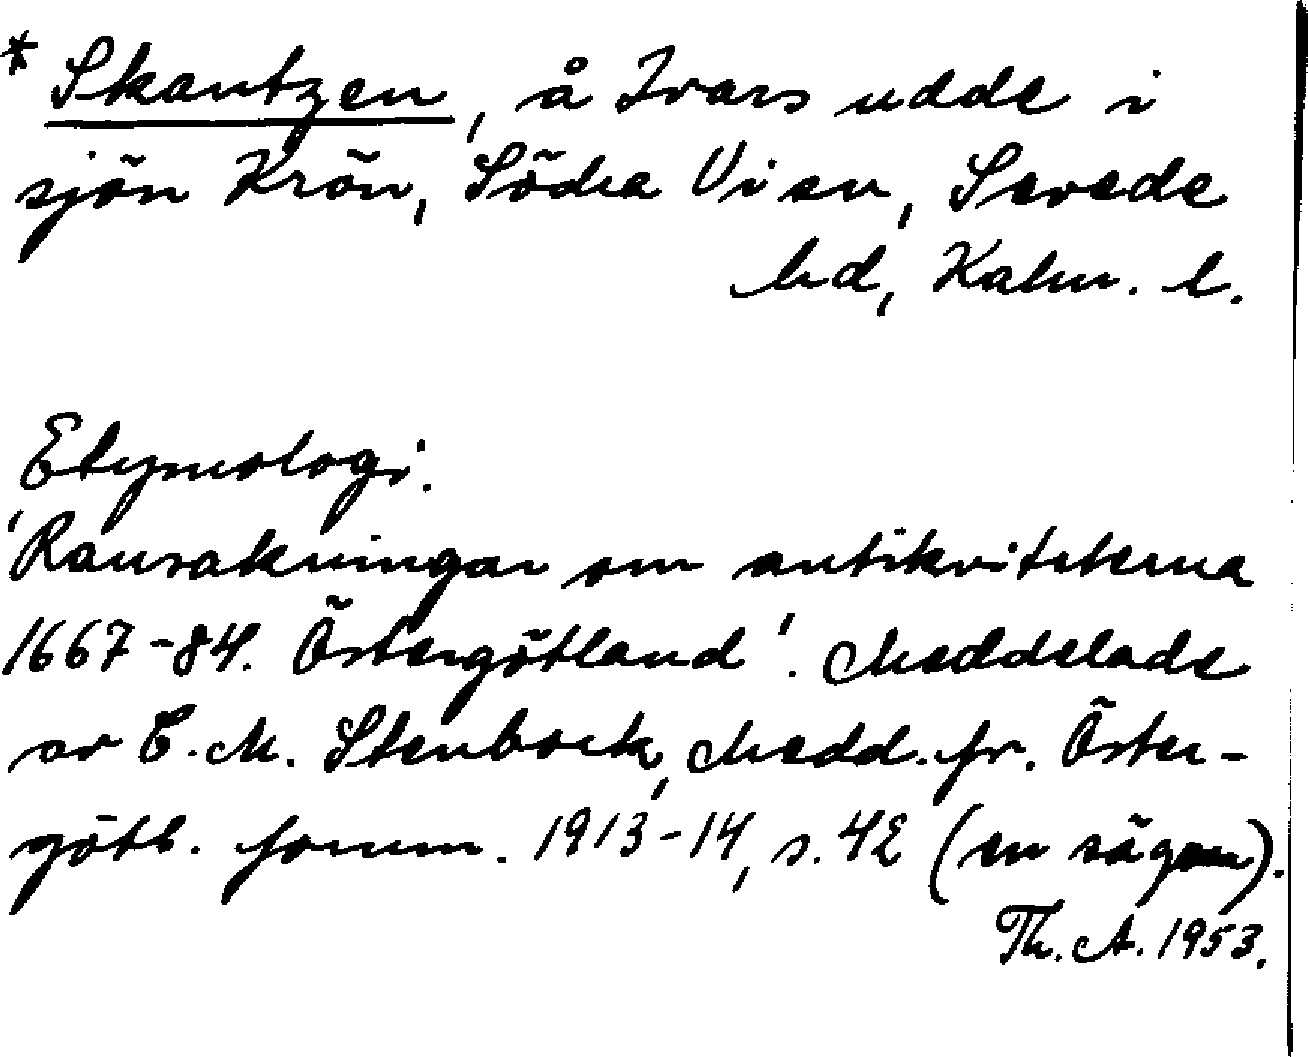 * Skantzen, å Ivars udde i
sjön Krön, Södra Vi sn, Sevede
hd, Kalm. l.
Etymologi.
'Ransakningar om antikviteterna
1667-84. Östergötland'. Meddelade
av C. M. Stenbock, Medd. fr. Öster-
götl. fornm. 1913-14, s. 42 (en sägen).
Th. A. 1953.